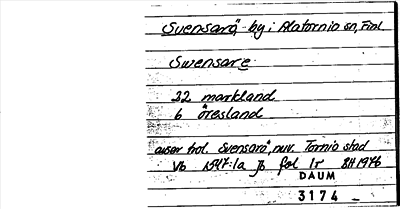 Svensarö, by i Alatornio sn, Finl.
Swensare
32 markland
6 öresland
avser trol. Svensarö, nuv. Tornio stad
Vb 1547:1a Jb fol 1r BH 1976
DAUM
3174